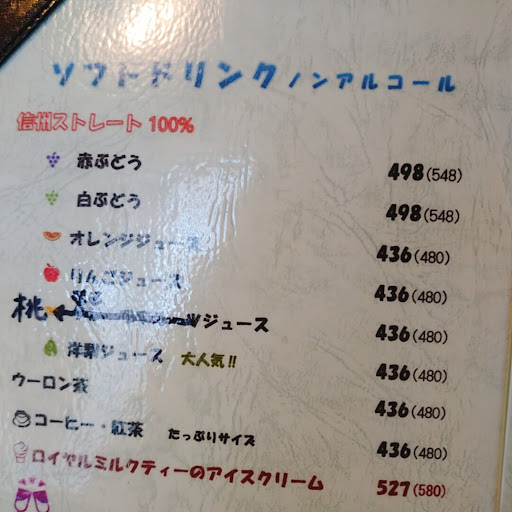 ソフトドリンクノンアルコール
信州ストレート 100%
赤ぶどう 498(548)
白ぶどう 498(548)
オレンジジュース 436(480)
りんごジュース 436(480)
桃 ジュース 436(480)
洋梨ジュース 大人気!! 436(480)
ウーロン茶 436(480)
コーヒー・紅茶 たっぷりサイズ 436(480)
ロイヤルミルクティーのアイスクリーム 527(580)